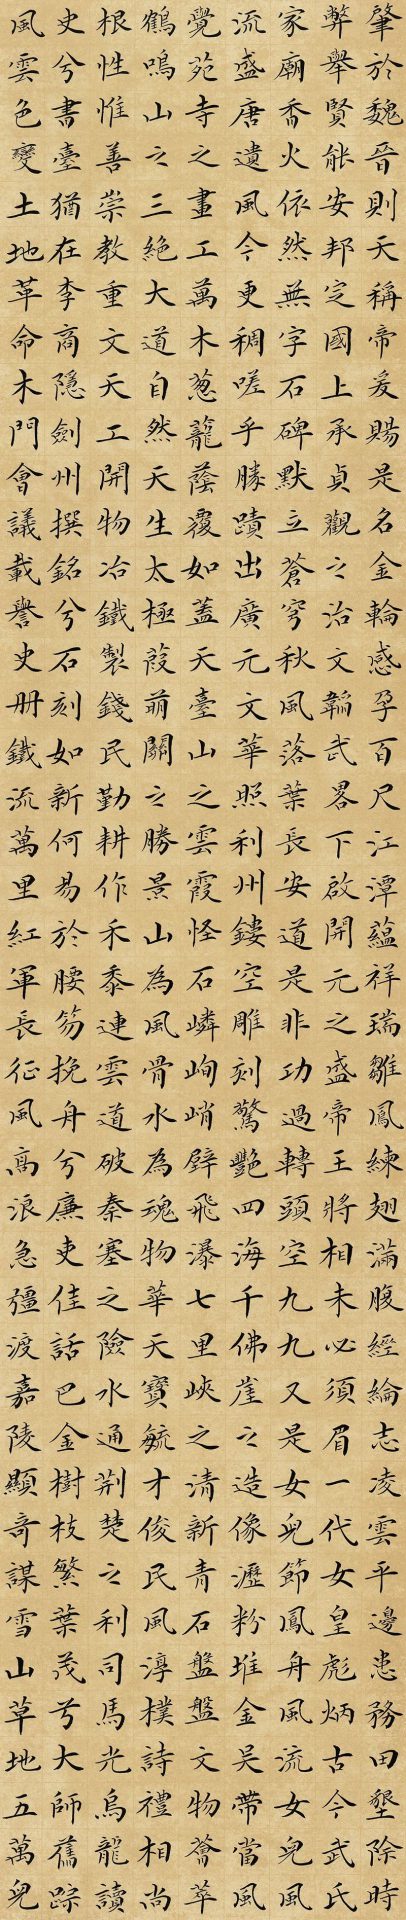 肇於魏晉則天稱帝爰賜是名金輪感孕百尺江潭蘊祥瑞雛鳳練翅滿腹經綸志凌雲平邊患務田墾除時
弊舉賢能安邦定國上承貞觀之治文韜武畧下啟開元之盛帝王將相未必須眉一代女皇彪炳古今武氏
家廟香火依然無字石碑默立蒼穹秋風落葉長安道是非功過轉頭空九九又是女兒節鳳舟風流女兒風
流盛唐遺風今更稠嗟乎勝蹟出廣元文華照利州鏤空雕刻驚艷四海千佛崖之造像瀝粉堆金吳帶當風
覺苑寺之畫工萬木葱蘢蔭覆如蓋天臺山之雲霞怪石嶙峋峭壁飛瀑七里峽之清新青石盤盤文物薈萃
鶴鳴山之三絕大道自然天生太極葭萌關之勝景山為風骨水為魂物華天寶毓才俊民風淳樸詩禮相尚
根性惟善崇教重文天工開物冶鐵製錢民勤耕作禾黍連雲道破秦塞之險水通荆楚之利司馬光烏龍讀
史兮書臺猶在李商隱劍州撰銘兮石刻如新何易於腰笏挽舟兮廉吏佳話巴金樹枝繁葉茂兮大師舊踪
風雲色變土地革命木門會議載譽史册鐵流萬里紅軍長征風高浪急彊渡嘉陵顯奇謀雪山草地五萬兒